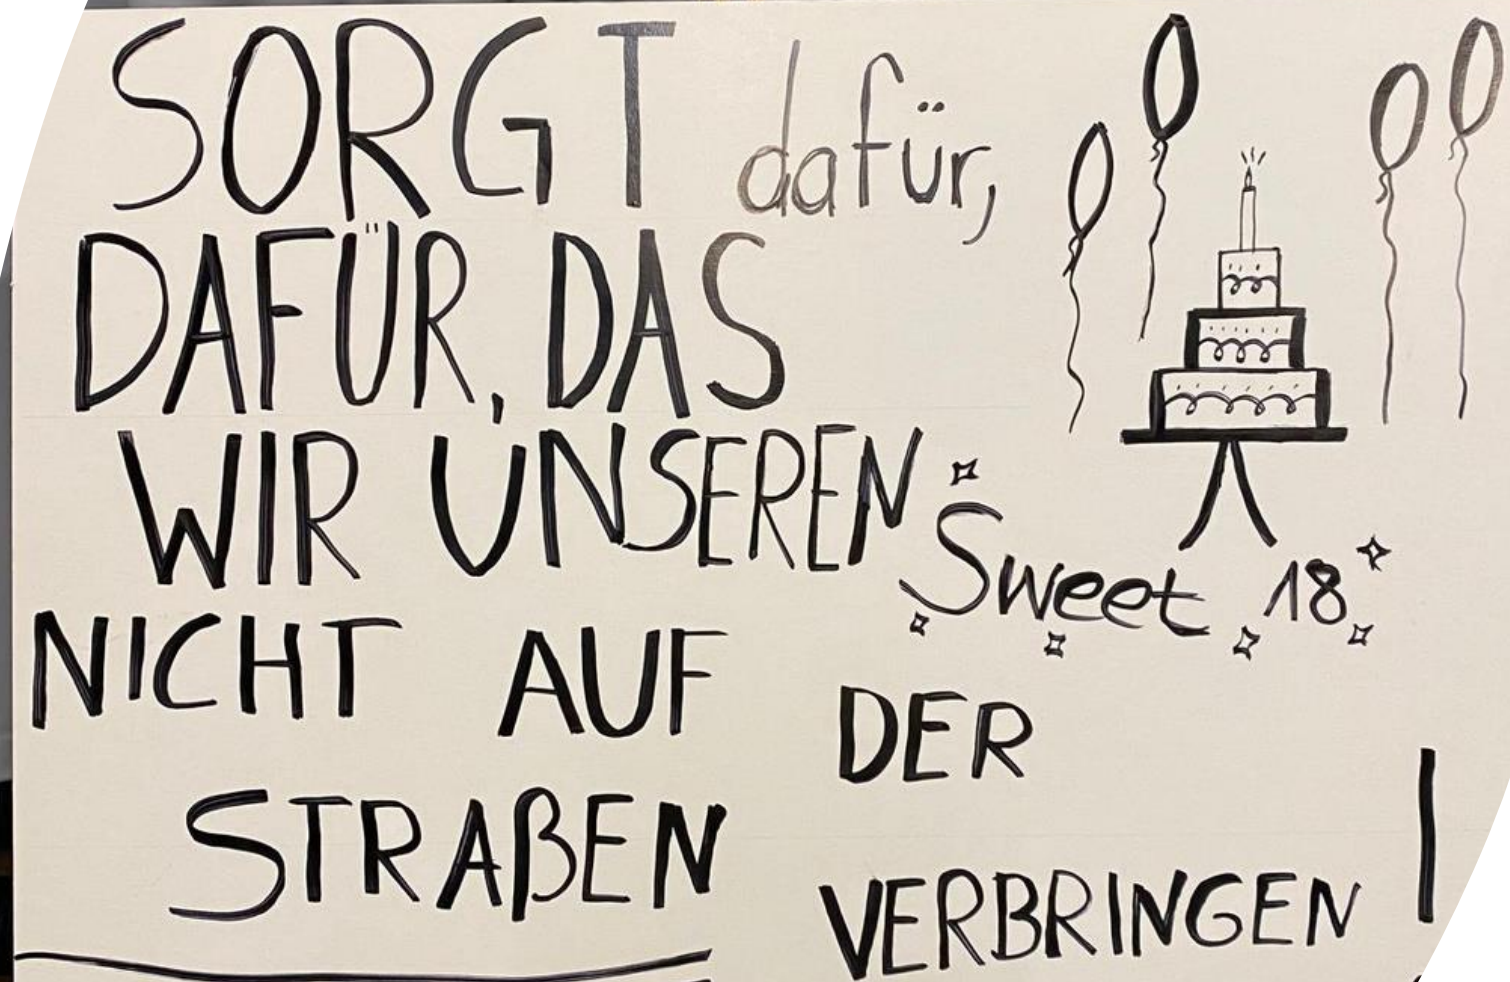 SORGT dafür,
DAFÜR, DAS
WIR UNSEREN
Sweet 18
NICHT AUF
DER
STRAßEN
VERBRINGEN !